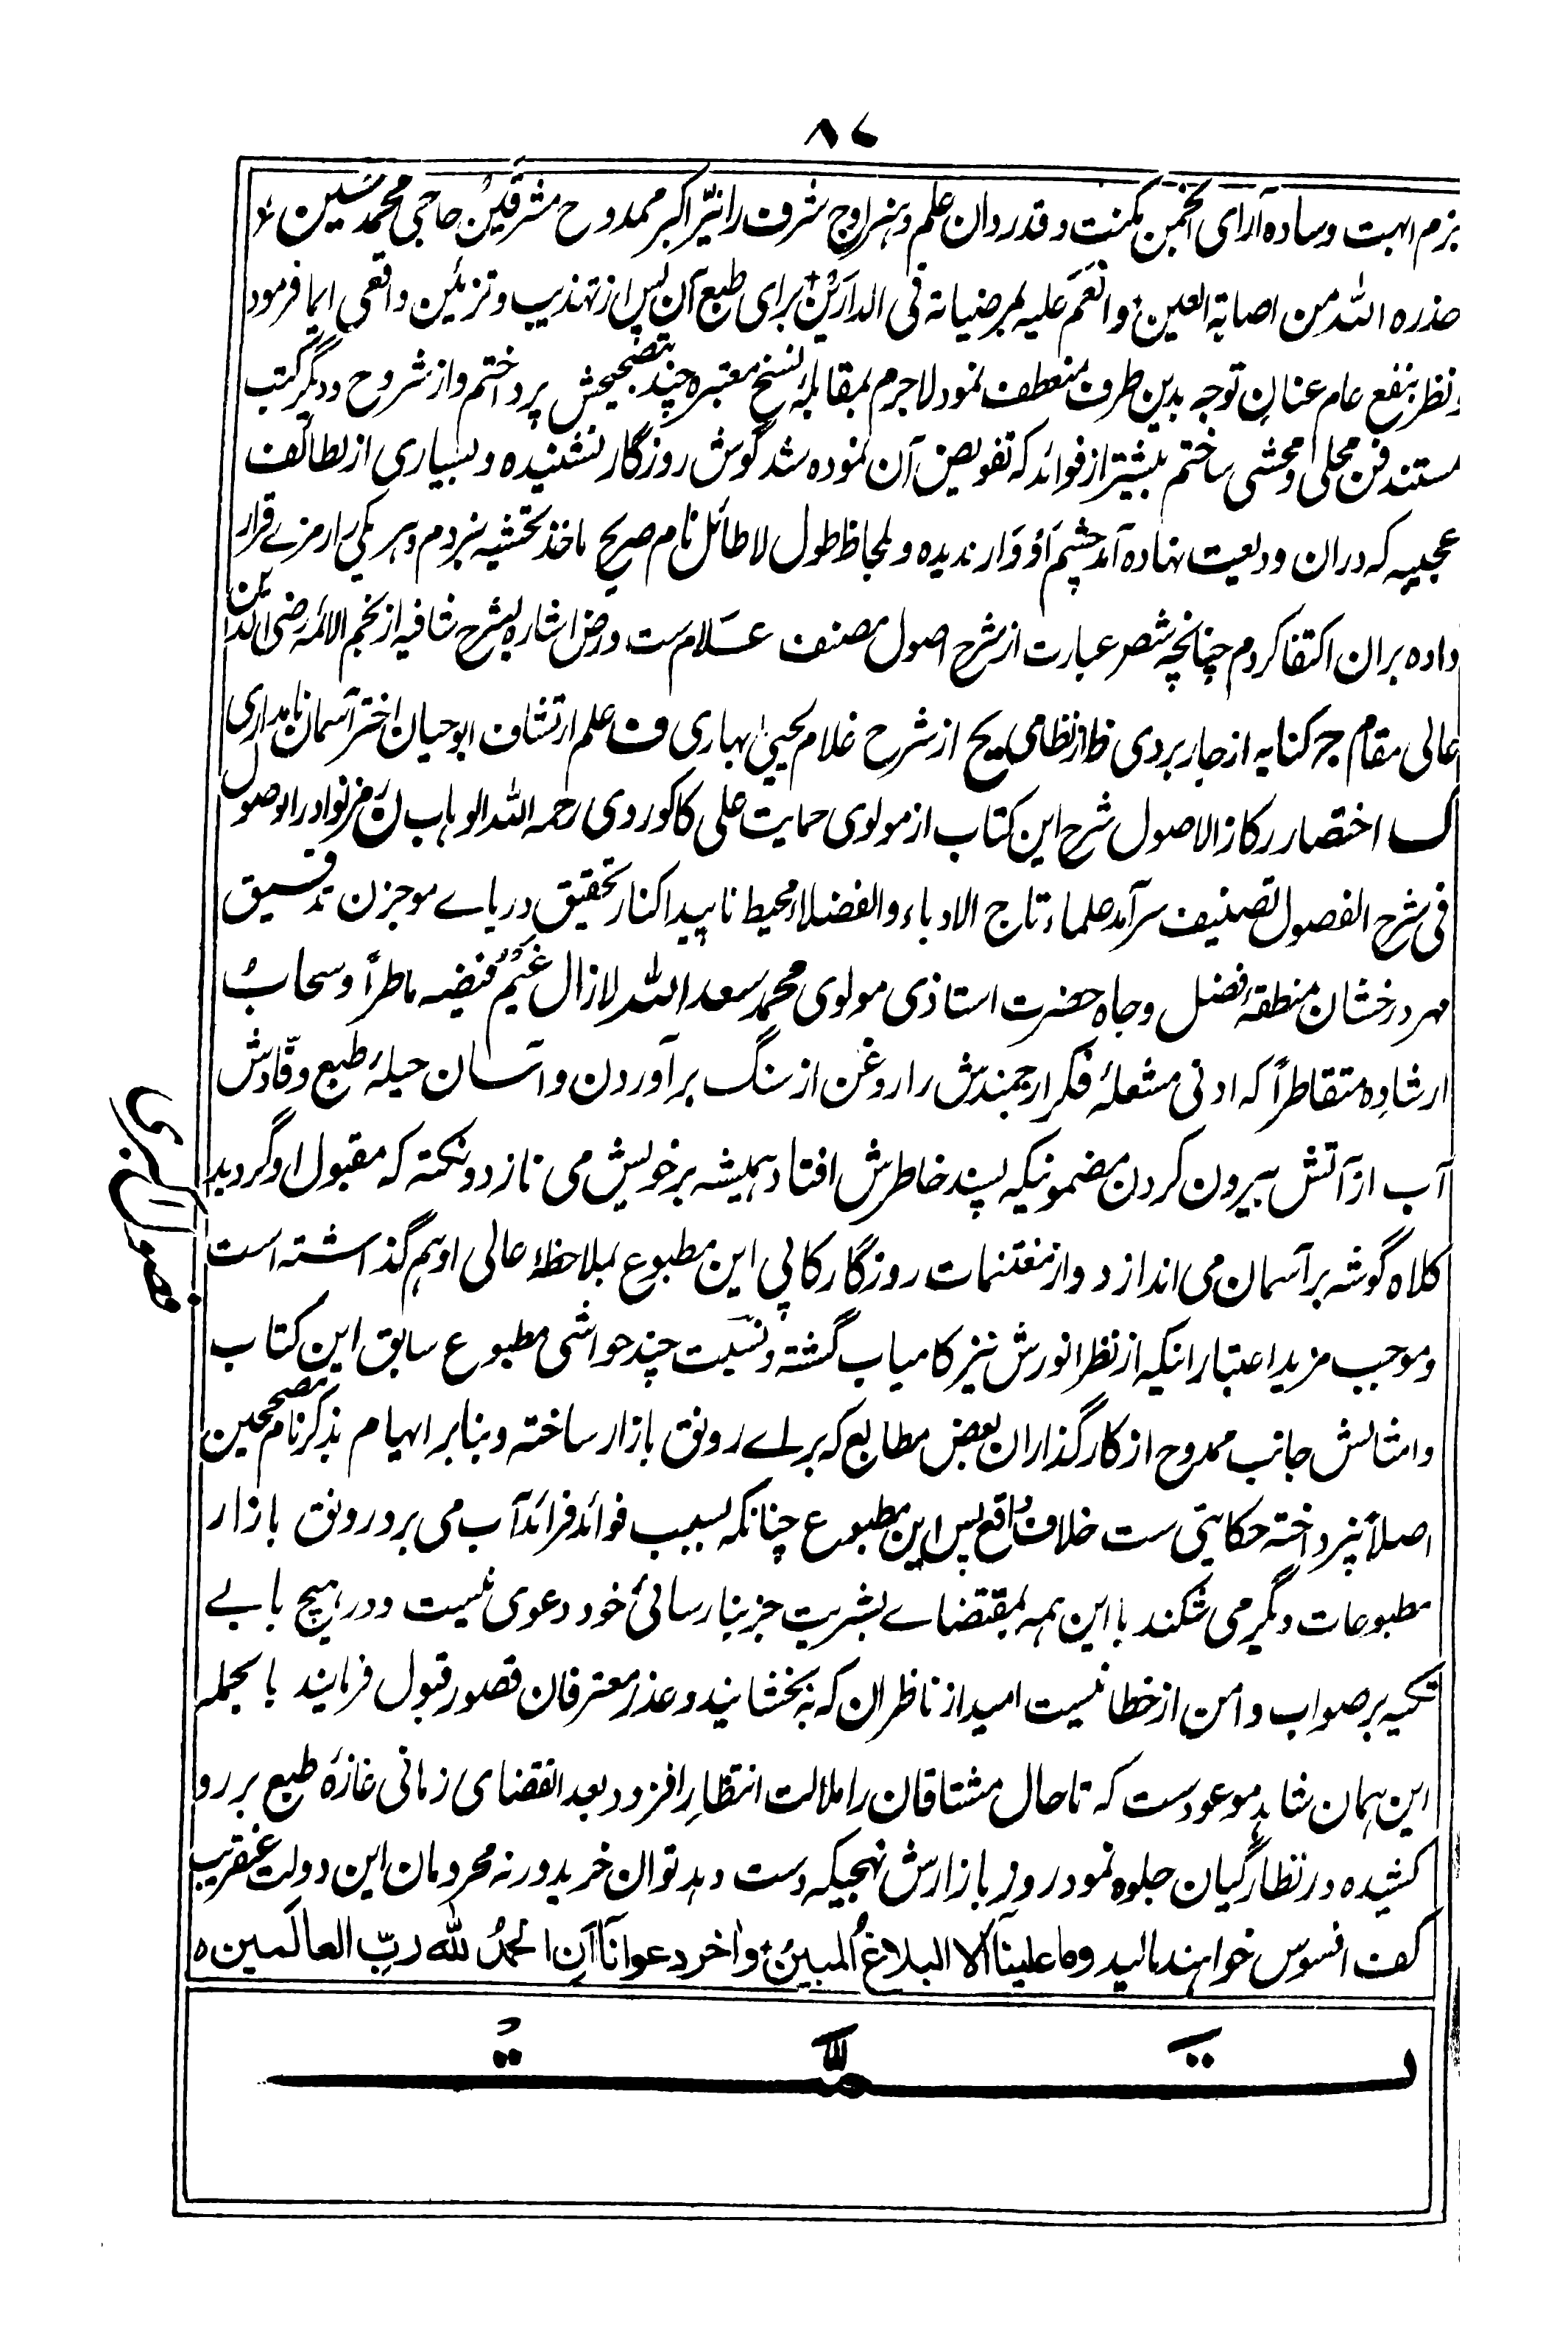 ۸۷
بزم ابهت وساده آرای انجمن مکنت و قدردان علم و هنر اوج شرف را نیّر اکبر ممدوح مشرقین حاجی محمد حسین
حذره اللہ من اصابۃ العین و انعَمَ علیہ بمرضیاتہ فی الدارَیْن برای طبع آن پس از تهذیب و تزئین واقعی ایما فرمود
ونظر بنفع عام عنانِ توجه بدین طرف منعطف نمود لاجرم بمقابلۂ نسخ معتبره چند بتصحیحش پرداختم و از شروح و دیگر کتب
مستند فن محلی و محشی ساختم بیشتر از فوائد که تفویض آن نموده شد گوش روزگار نشنیده و بسیاری از لطائف
عجیبه که دران ودیعت نهاده آمد چشم اَدْوَار ندیده و بلحاظ طول لاطائل نام صریح ماخذ تحشیه نبردم و هر یکی را رمزے قرار
داده بران اکتفا کردم چنانچه شصر عبارت از شرح اصول مصنف علام ست و رض اشاره بشرح شافیه از نجم الائمه رضی الدین
عالی مقام جر کنایه از جاربردی ظ از نظامی یح از شرح غلام یحییٰ بهاری ف علم ارتشاف ابوحیان اختر آسمان نامداری
ک اختصار رکاز الاصول شرح این کتاب از مولوی حمایت علی کاکوروی رحمه اللہ الوهاب ن رمز نوادر الوصول
فی شرح الفصول تصنیف سرآمد علماء تاج الادباء والفضلاء محیط ناپیدا کنار تحقیق دریاے موجزن تدقیق
مهر درخشان منطقۂ فضل و جاه حضرت استاذی مولوی محمد سعد اللہ لازال غیم فیضہ ماطراً و سحابُ
ارشادِہ متقاطراً که ادنی مشعلۂ فکر ارجمندش را روغن از سنگ برآوردن و آسان حیلۂ طبع وقّادش
آب از آتش بیرون کردن مضمونیکه پسند خاطرش افتاد همیشه بر خویش می نازد و نکته که مقبول او گردید
کلاه گوشه بر آسمان می اندازد و از مغتنمات روزگار کاپی این مطبوع بملاحظۂ عالی او هم گذاشته است
و موجب مزید اعتبار اینکه از نظر انورش نیز کامیاب گشته و نسبت چند حواشی مطبوع سابق این کتاب
و امثالش جانب ممدوح از کارگذاران بعض مطابع که براے رونق بازار ساخته و بنابر ابهام بذکر نام مصححین
اصلاً نپرداخته حکایتی ست خلاف واقع پس این مطبوع چنانکه بسبب فوائد فرائد آب می برد رونق بازار
مطبوعات دیگر می شکند با این همه بمقتضاے بشریت جز بنارسائی خود دعوی نیست و در هیچ بابے
تکیه بر صواب و امن از خطا نیست امید از ناظران که به بخشایند و عذر معترفان قصور قبول فرمایند بالجمله
این همان شاہد موعودست که تا حال مشتاقان را ملالت انتظار افزود بعد انقضای زمانی غازۂ طبع بر رو
کشیده در نظارگیان جلوه نمود روبر بازارش نهجیکه دست دهد توان خرید ورنه محرومان این دولت عنقریب
کف افسوس خواهند مالید وما علینآ الا البلاغُ المبینُ واٰخر دعوانآ اَنِ الحمدُ للہ ربِّ العالمین ه
تَمَّتْ
فصول اکبری